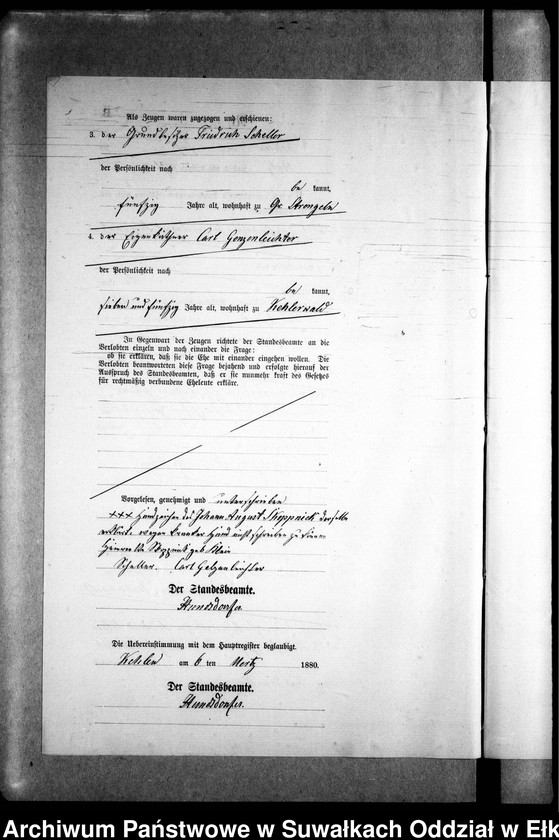 Als Zeugen waren zugezogen und erschienen:
3. der Grundbesitzer Friedrich Scheller
der Persönlichkeit nach
be kannt,
fünfzig Jahre alt, wohnhaft zu Gr Strengeln
4. der Eigenkäthner Carl
der Persönlichkeit nach
be kannt,
sieben und fünfzig Jahre alt, wohnhaft zu Kehlerwald
In Gegenwart der Zeugen richtete der Standesbeamte an die
Verlobten einzeln und nach einander die Frage:
ob sie erklären, daß sie die Ehe mit einander eingehen wollen. Die
Verlobten beantworteten diese Frage bejahend und erfolgte hierauf der
Ausspruch des Standesbeamten, daß er sie nunmehr kraft des Gesetzes
für rechtmäßig verbundene Eheleute erkläre.
Vorgelesen, genehmigt und unterschrieben
+++ Handzeichen des Johann August Skeppnick derselbe
erklärt wegen kranker Hand nicht schreiben zu können
geb Klein
Scheller. Carl
Der Standesbeamte.
Hunsdorfer.
Die Uebereinstimmung mit dem Hauptregister beglaubigt.
Kehlen am 6 ten Mertz 1880.
Der Standesbeamte.
Hunsdorfer.
Archiwum Państwowe w Suwałkach Oddział w Ełk